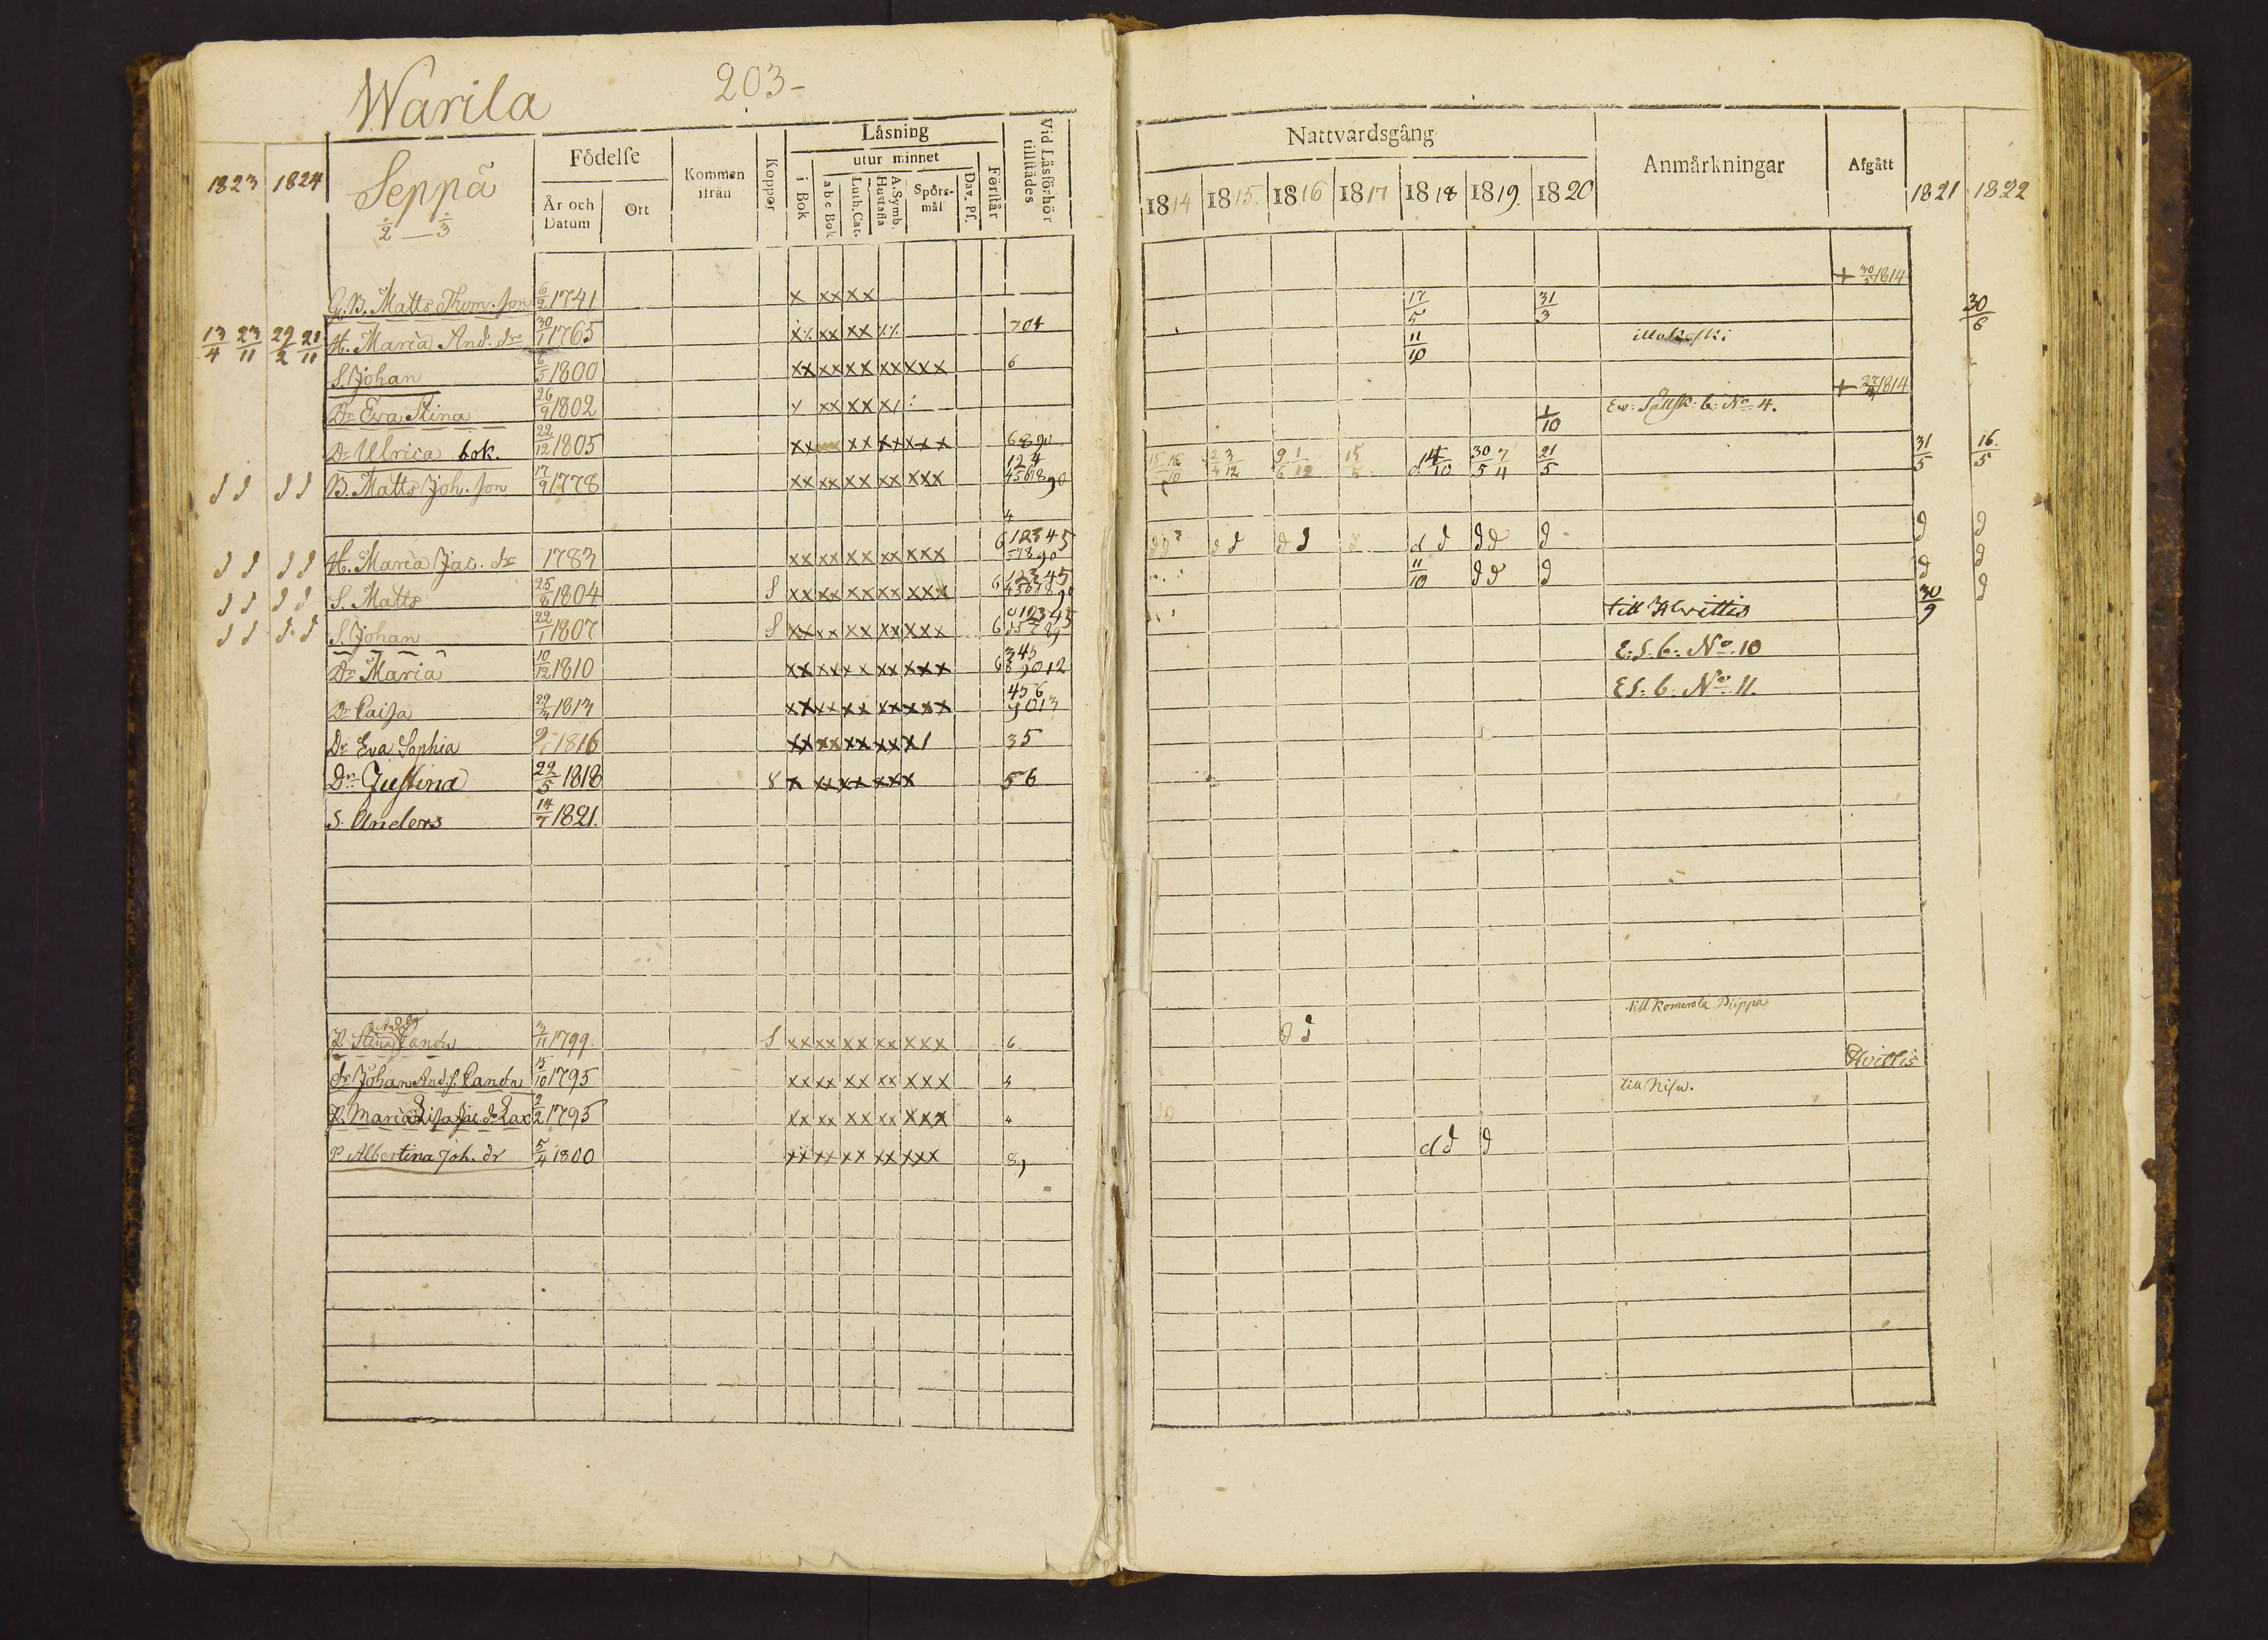 Warila
203-
1823 1824
Seppä
2 — 3
Födelse
År och Datum
Ort
Kommen ifrån
Koppor
Läsning
i Bok
utur minnet
abc Bok
Luth. Cat.
Hustafla
A. Symb.
Spörsmål
Dav. Ps.
Förstår
Vid Läsförhör tillstädes
G.B. Matts Thom. son 6/2 1741 x xx xx
13/4 23/11 29/2 21/11 H. Maria And. dr 30/1 1765 704
S. Johan 6/5 1800 xx xx xx xx xxx 6
Dr Eva Stina 26/9 1802
Dr Ulrica bok. 22/12 1805 6890
d d d d B. Matts Joh. son 17/9 1778 xx xx xx xx xxx 124 4567890
4
d d d d H. Maria Jac. dr 1783 xx xx xx xx xxx 6 12345 7890
d d d d S. Matts 25/8 1804 S xx xx xx xx xxx 6 12345
d d d d S. Johan 22/1 1807 S xx xx xx xx xxx 6 012345
Dr Maria 10/12 1810 xx xx xx xx xxx 345 689012
Dr Caisa 29/3 1813 xx xx xx xx xxx 456 9013
Dr Eva Sophia 1816 xx xx xx xx x/ 35
Dr Justina 29/5 1818 x xx xx xx x 56
S. Anders 14/7 1821.
And. dr
P. Stina Canon 3/11 1799 S xx xx xx xx xxx 6
dr Johan And. s. Canon 15/10 1795 xx xx xx xx xxx 4
P. Maria Lisa Jac. dr Lax 2/2 1795 xx xx xx xx xxx 4
P. Albertina Joh. dr 5/4 1800 xx xx xx xx xxx 8,
Nattvardsgång
1814 1815. 1816 1817 1818 1819. 1820
Anmärkningar
Afgått
1821 1822
+ 30/3 1814
17/5 31/3 30/6
11/10
+ 27/3 1814
1/10 Ew. Sällsk. b. No 4.
15/4 16/10 23/4 3/12 9/6 1/12 15/5 4/10 30/5 7/4 21/5 31/5 16/5
d d d d d d d d d d d d d
11/10 d d d d d
till Hvittis 30/9 d
E. S. b: No. 10
E S. b. No. 11.
till Komerola Pieppa
d d
Hvittis
till Nisu.
d d d